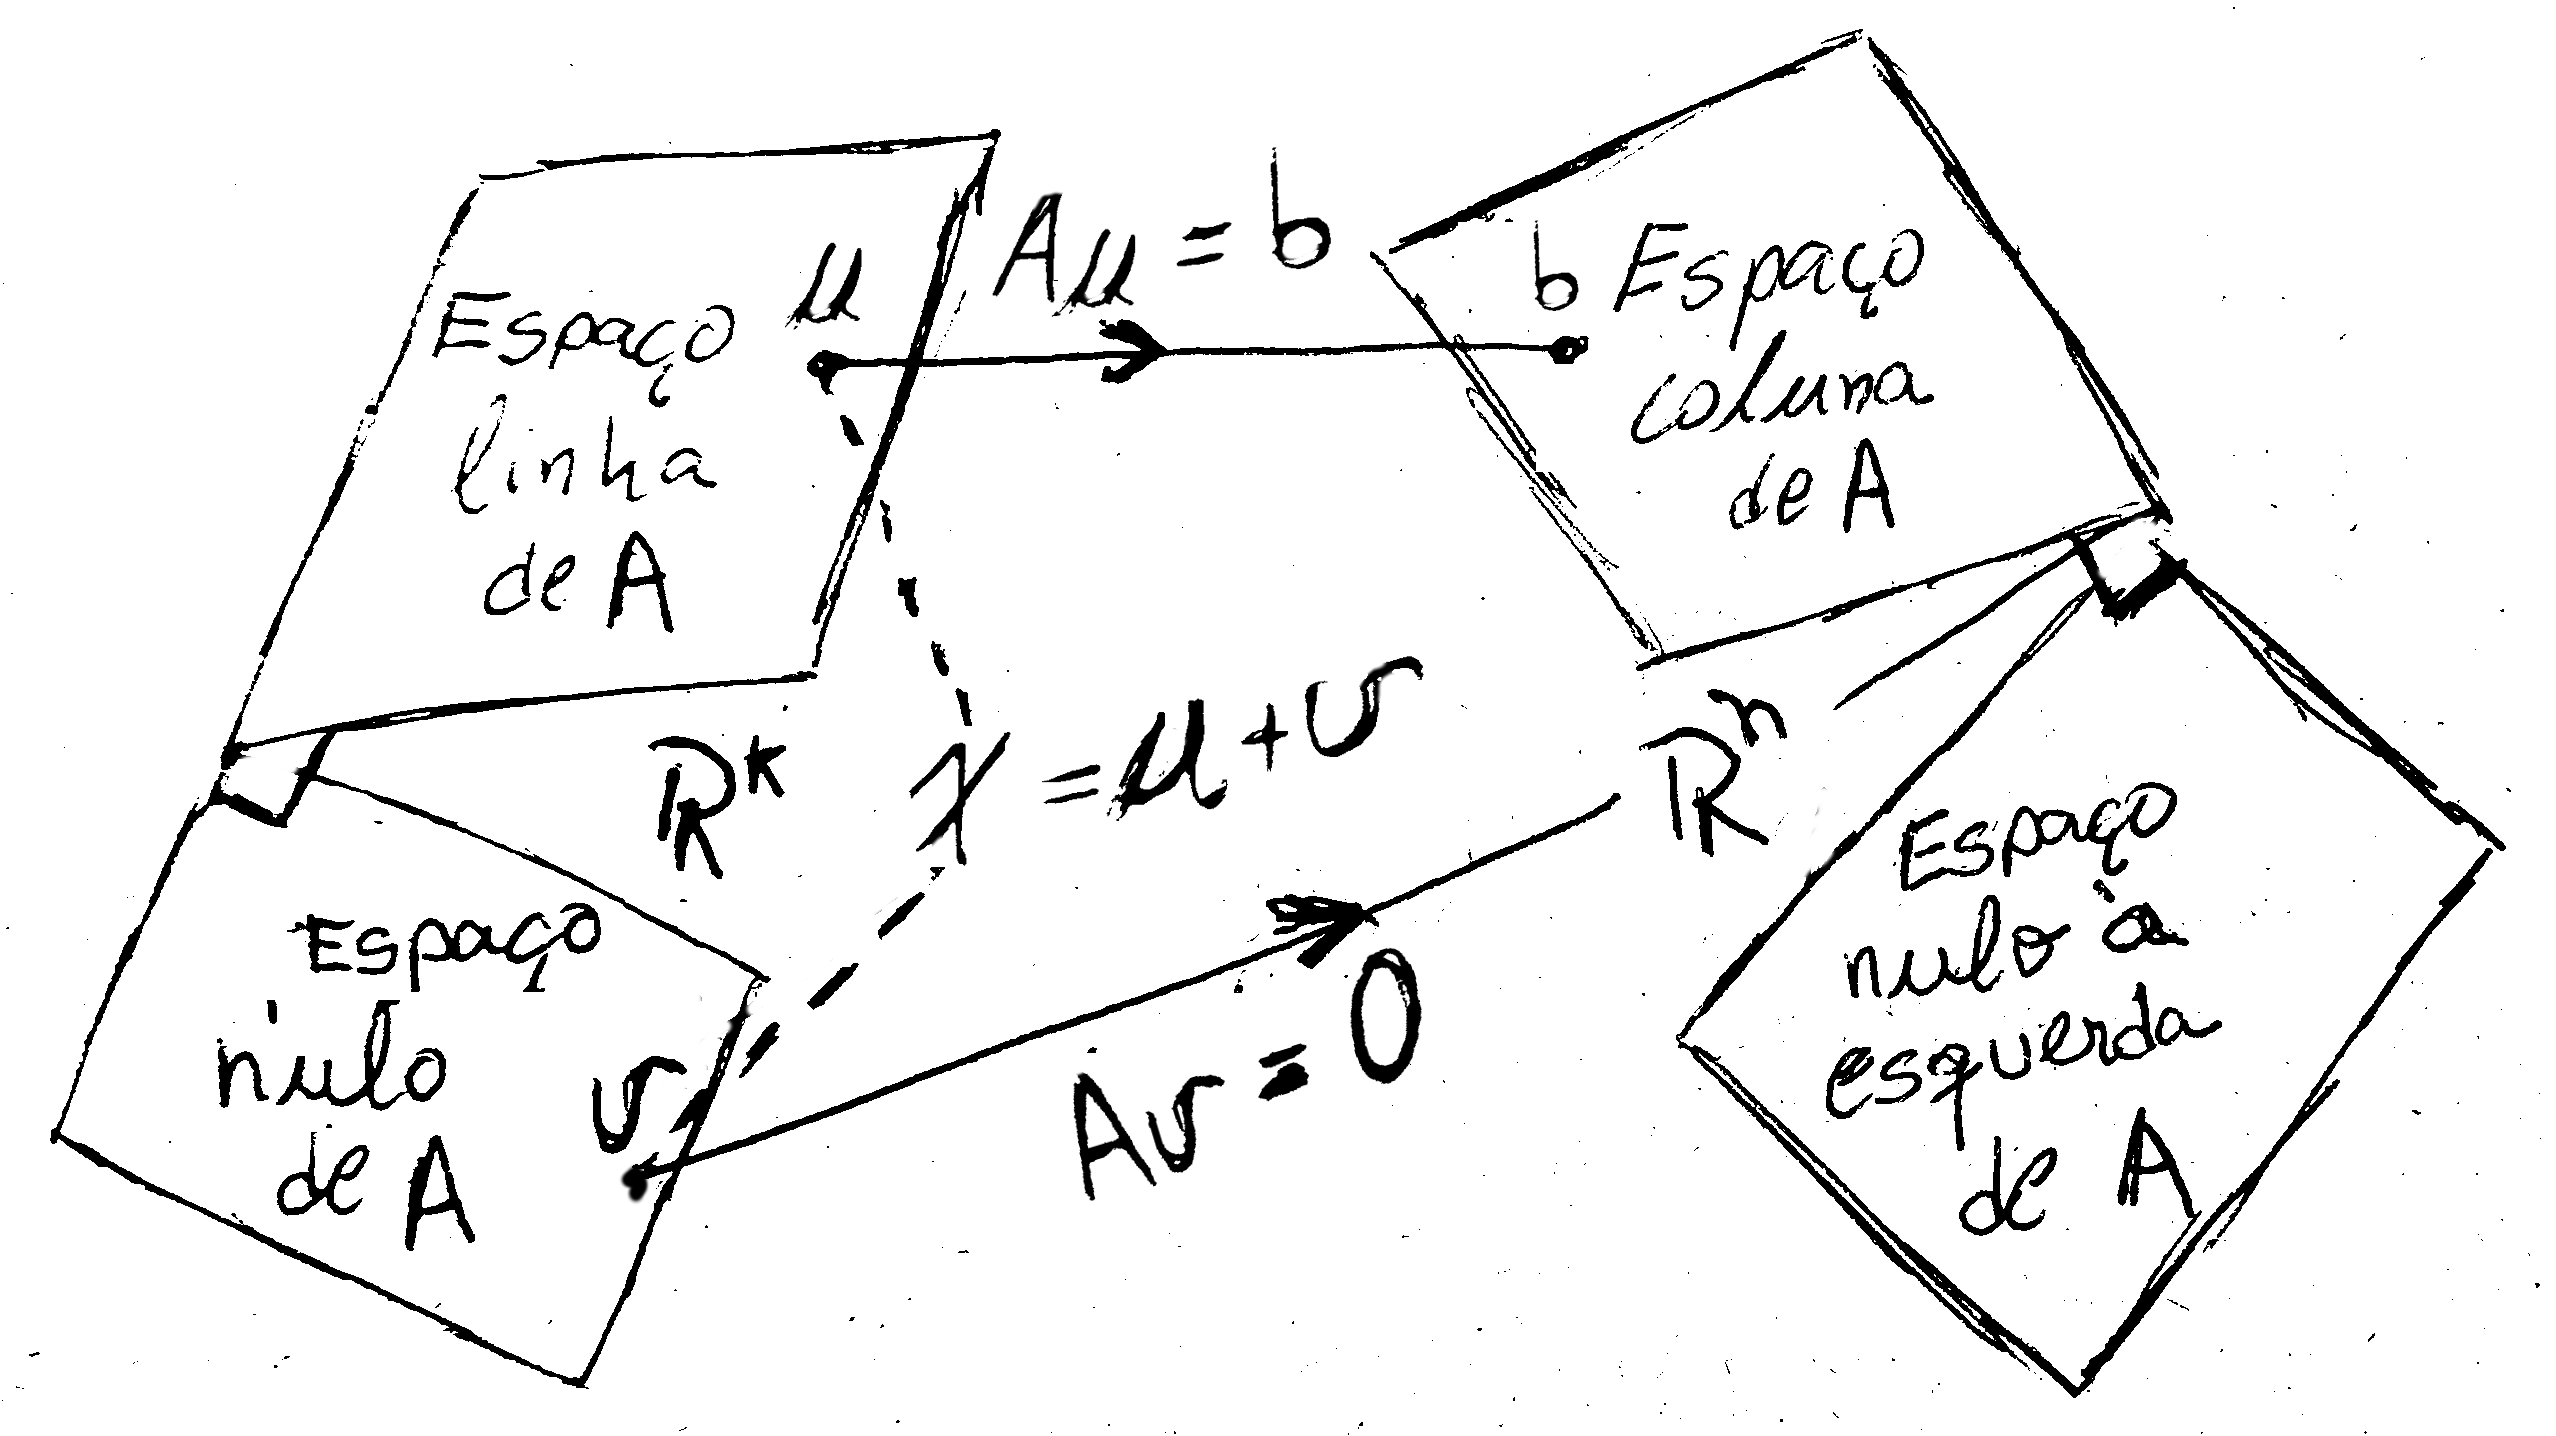 Espaço
linha
de A
μ
Aμ = b
b
Espaço
coluna
de A
R^k
x = μ + v
R^n
Espaço
nulo
de A
v
Av = 0
Espaço
nulo à
esquerda
de A